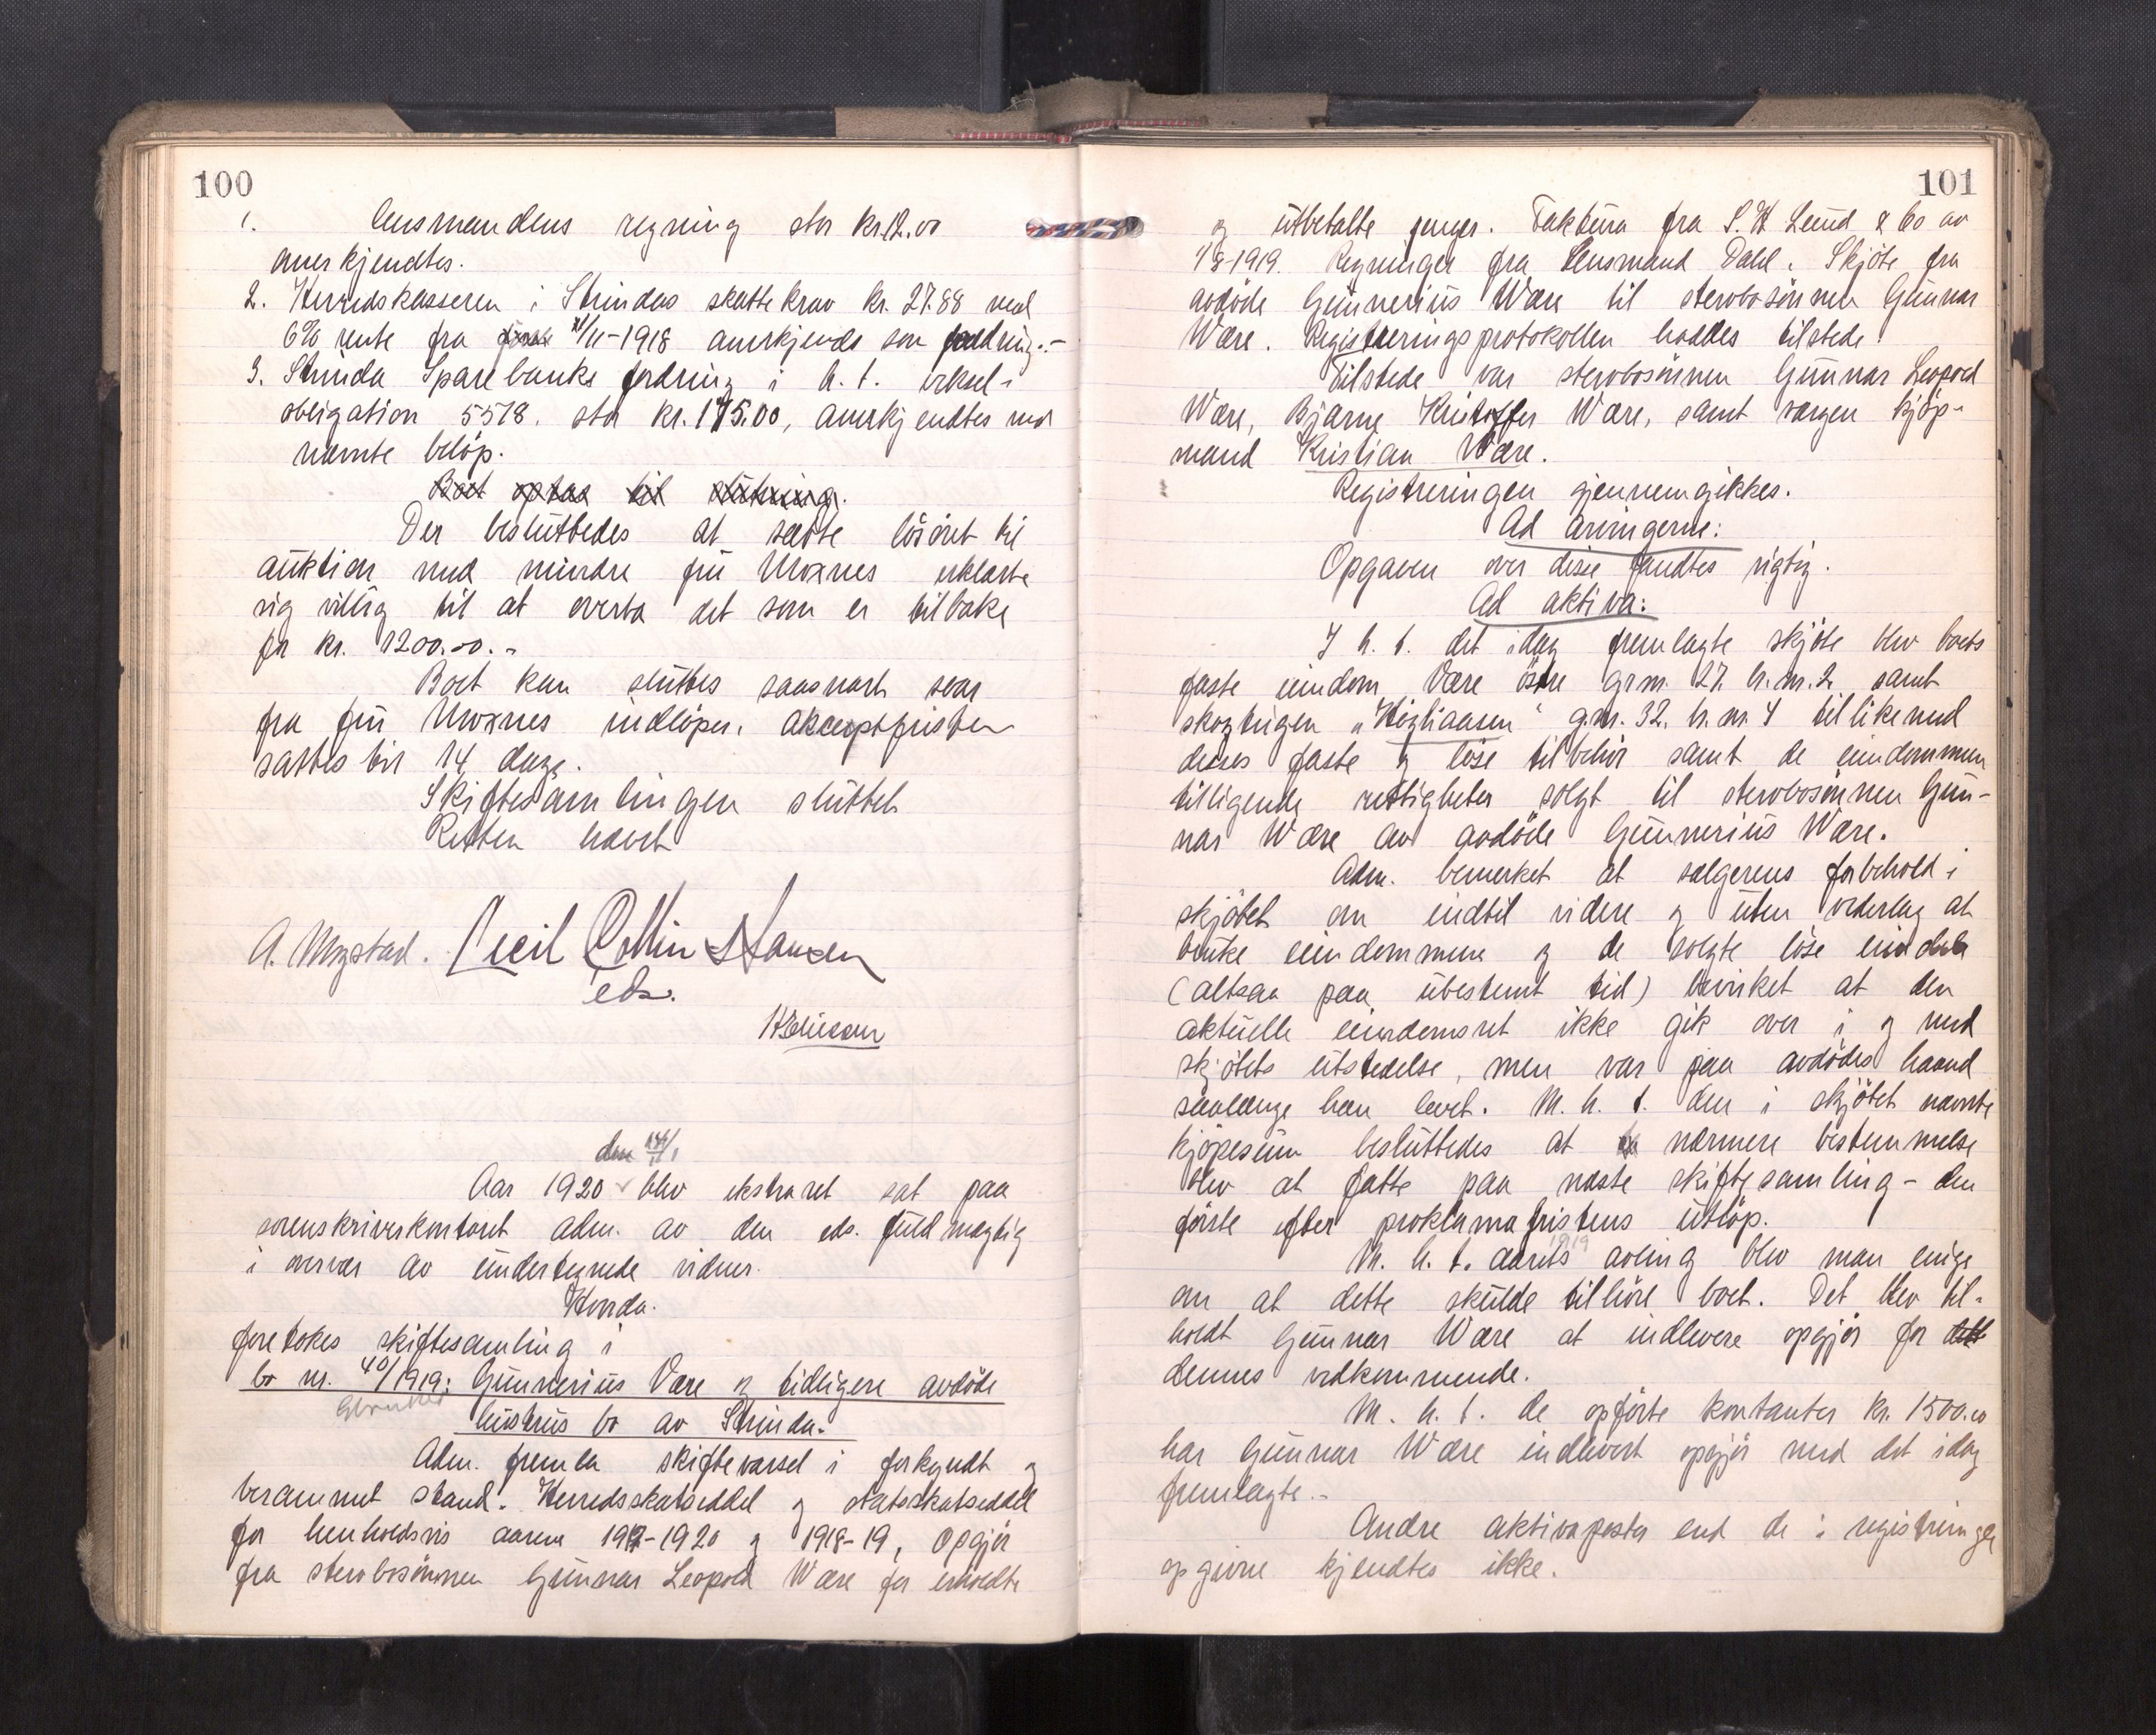 100
1. lensmandens regning stor kr. 12.00
anerkjendtes.
2. Herredskasseren i Strindas skattekrav kr. 27.88 med
6% rente fra 11/11-1918 anerkjendes som fordring.-
3. Strinda Sparebanks fordring i h. t. veksel-
obligation 5578. stor kr. 175.00, anerkjendtes med
nævnte beløp.
Boet optas til slutning.
Der beslutbedes at sætte løsøret til
auktion med mindre fru Moxnes erklærte
sig villig til at overta det som er tilbake
for kr. 1200.00.-
Boet kan sluttes saasnart svar
fra fru Moxnes indløper. Akceptfristen
sættes til 14 dage.
Skiftesamlingen sluttet
Retten hævet
A. Mystad. Cecil Collin Hansen
eds.
den 14/1
Aar 1920 blev ekstraret sat paa
sorenskriverkontoret adm. av den eds. fuldmægtig
i overvær av undertegnede vidner.
Hvorda.
foretokes skiftesamling i
bo nr. 40/1919: Gunnerius Være og tidligere avdøde
hustrus bo av Strinda.
Adm. fremla skiftevarsel i forkyndt og
berammet stand. Herredsskatseddel og statsskatseddel
for henholdsvis aarene 1919-1920 og 1918-19, Opgjør
fra stervbosønnen Gunnar Leopold Wære for erholdte
101
og utbetalte penger. Faktura fra S. H Lund & Co av
1/8-1919. Regninger fra Lensmand Dahl. Skjøte fra
avdøde Gunnerius Wære til stervbosønnen Gunnar
Wære. Registreringsprotokollen haddes tilstede
Tilstede var stervbosønnen Gunnar Leopold
Wære, Bjarne Kristoffer Wære, samt værgen kjøp-
mand Kristian Wære.
Registreringen gjennemgikkes.
Ad arvingerne:
Opgaven over disse fandtes rigtig.
Ad aktiva:
I h. t. det idag fremlagte skjøte blev boets
faste eiendom Være østre gr.nr. 27 br.nr. 2 samt
skogteigen "Høgliaasen" g.nr. 32. br. nr. 4 tillikemed
disses faste og løse tilbehør samt de eiendommen
tilligende rettigheter solgt til stervbosønnen Gun-
nar Wære av avdøde Gunnerius Wære.
Adm. bemerket at sælgerens forbehold i
skjøtet om indtil videre og uten vederlag at
bruke eiendommene og de solgte løse eiendele
(altsaa paa ubestemt tid) bevirket at den
aktuelle eiendomsret ikke gik over i og med
skjøtets utstedelse, men var paa avdødes haand
saalænge han levet. M. h. t. den i skjøtet nævnte
kjøpesum besluttedes at nærmere bestemmelse
blev at fatte paa næste skiftesamling - den
første efter proklamafristens utløp.
M. h. t. aarets 1919 avling blev man enige
om at dette skulde tilhøre boet. Det blev til-
holdt Gunnar Wære at indlevere opgjør for dett
dennes vedkommende.
M. h. t. de opførte kontanter kr. 1500.00
har Gunnar Wære indlevert opgjør med det idag
fremlagte.-
Andre aktivaposter end de i registringen
opgivne kjendtes ikke.